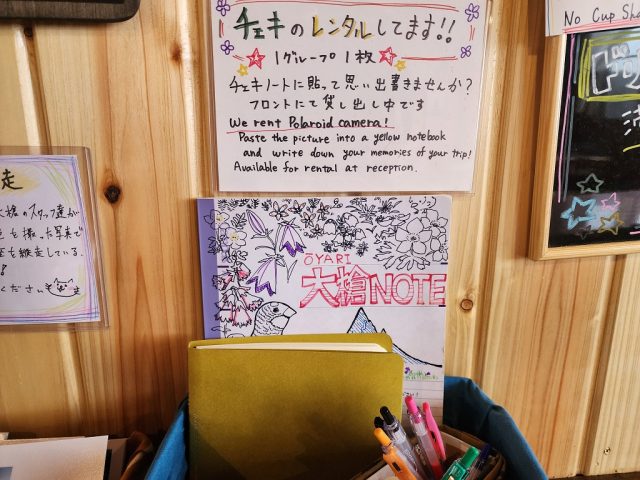 チェキのレンタルしてます!!
1グループ1枚
チェキノートに貼って思い出書きませんか?
フロントにて貸し出し中です
We rent Polaroid camera!
Paste the picture into a yellow notebook
and write down your memories of your trip!
Available for rental at reception.
ŌYARI
大槍NOTE
No Cup
走
のスタッフ達が
を撮った写真で
を縦走している
ください